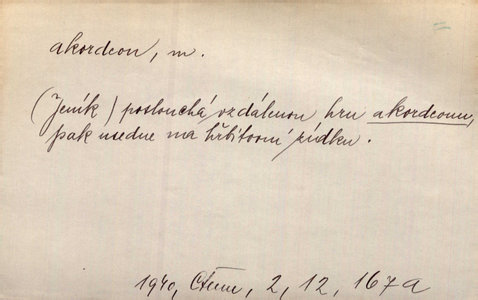 akordeon, m.
(Jeník) poslouchá vzdálenou hru akordeonu,
pak usedne na hřbitovní zídku.
1940, Čteme, 2, 12, 167a